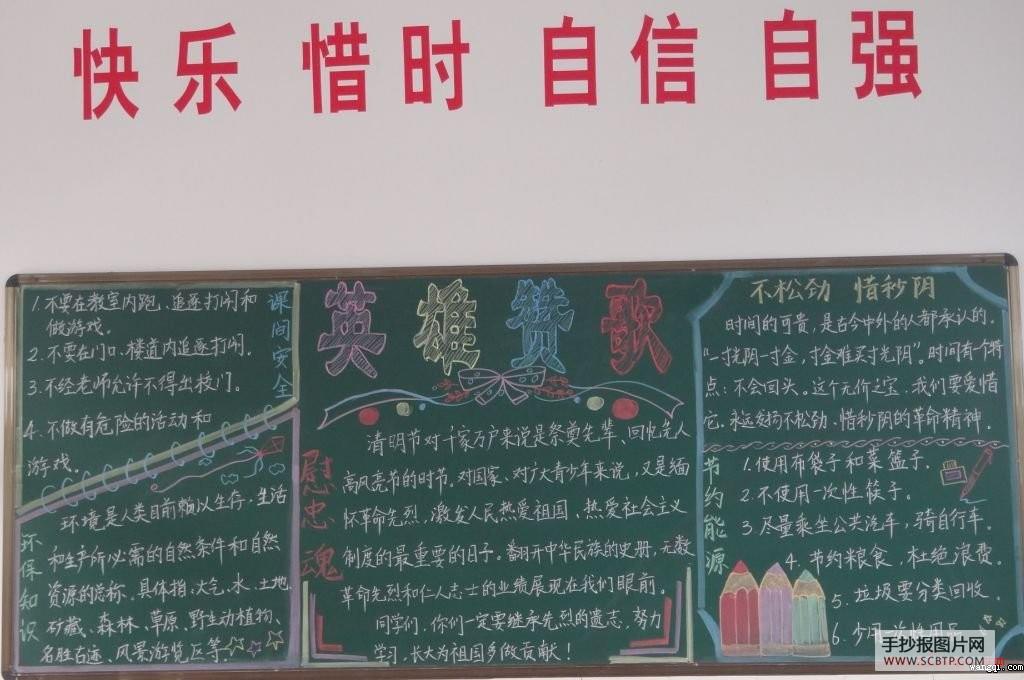 快乐 惜时 自信 自强
课间安全
1.不要在教室内跑、追逐打闹和
做游戏。
2.不要在门口、楼道内追逐打闹。
3.不经老师允许不得出校门。
4.不做有危险的活动和
游戏。
环保知识
环境是人类目前赖以生存、生活
和生产所必需的自然条件和自然
资源的总称。具体指:大气、水、土地、
矿藏、森林、草原、野生动植物、
名胜古迹、风景游览区等。
英雄赞歌
慰忠魂
清明节对千家万户来说是祭奠先辈、回忆先人
高风亮节的时节,对国家、对广大青少年来说,又是缅
怀革命先烈,激发人民热爱祖国、热爱社会主义
制度的最重要的日子。翻开中华民族的史册,无数
革命先烈和仁人志士的业绩展现在我们眼前。
同学们,你们一定要继承先烈的遗志,努力
学习,长大为祖国多做贡献!
不松劲 惜秒阴
时间的可贵,是古今中外的人都承认的。
“一寸光阴一寸金,寸金难买寸光阴”。时间有个特
点:不会回头。这个无价之宝,我们要爱惜
它,永远发扬不松劲、惜秒阴的革命精神。
节约能源
1.使用布袋子和菜篮子.
2.不使用一次性筷子。
3 尽量乘坐公共汽车,骑自行车。
4.节约粮食,杜绝浪费。
5.垃圾要分类回收。
6.少用
手抄报图片网
WWW.SCBTP.COM
wangqi.com